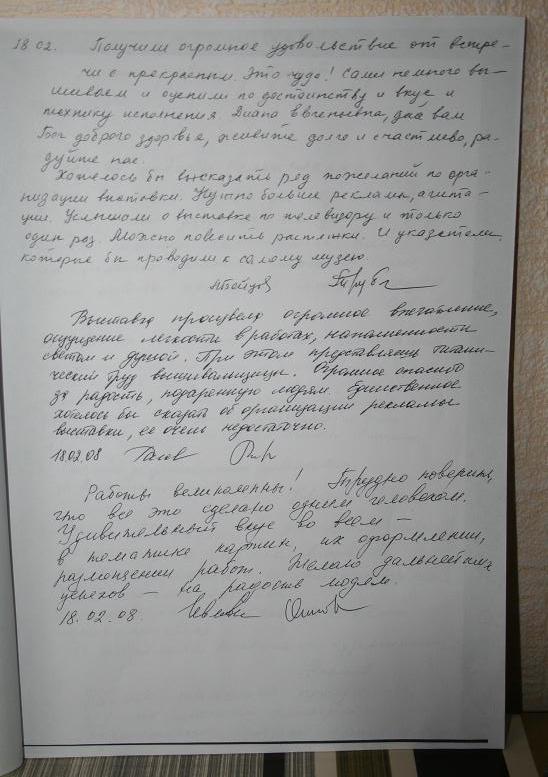 18.02. Получили огромное удовольствие от встре-
чи с прекрасным. Это чудо! Сами немного вы-
шиваем и оценили по достоинству и вкус и
технику исполнения. Диана Евгеньевна, дай вам
Бог доброго здоровья, живите долго и счастливо, ра-
дуйте нас.
Хотелось бы высказать ряд пожеланий по орга-
низации выставки. Нужно больше рекламы, агита-
ции. Услышали о выставке по телевизору и только
один раз. Можно повесить растяжки. И указатели,
которые бы проводили к самому музею.
Выставка произвела огромное впечатление,
ощущение легкости в работах, наполненности
светом и душой. При этом представляешь титани-
ческий труд вышивальщицы. Огромное спасибо
за радость, подаренную людям. Единственное
хотелось бы сказать об организации рекламы
выставки, ее очень недостаточно.
18.02.08
Работы великолепны! Трудно поверить,
что все это сделано одним человеком.
Удивительный вкус во всем –
в тематике картин, их оформлении,
размещении работ. Желаю дальнейших
успехов – на радость людям.
18.02.08.